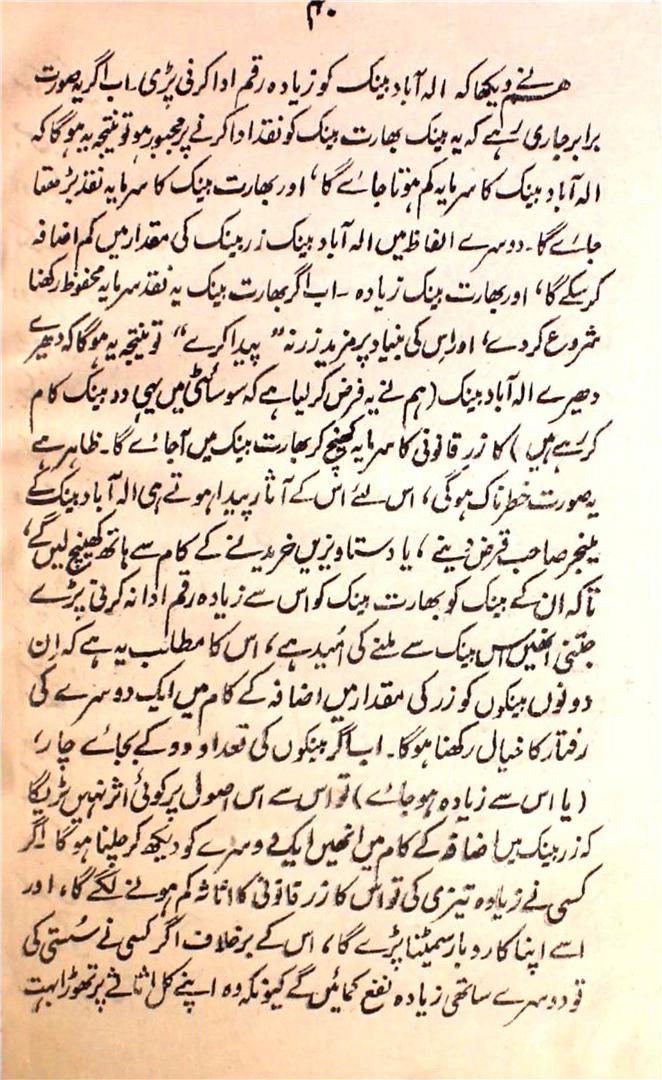 ۴۰
ہم نے دیکھا کہ الہ آباد بینک کو زیادہ رقم ادا کرنی پڑی۔ اب اگر یہ صورت
برابر جاری رہے کہ یہ بینک بھارت بینک کو نقد ادا کرنے پر مجبور ہو تو نتیجہ یہ ہوگا کہ
الہ آباد بینک کا سرمایہ کم ہوتا جائے گا، اور بھارت بینک کا سرمایہ نقد بڑھتا
جائے گا۔ دوسرے الفاظ میں الہ آباد بینک زر بینک کی مقدار میں کم اضافہ
کر سکے گا، اور بھارت بینک زیادہ۔ اب اگر بھارت بینک یہ نقد سرمایہ محفوظ رکھنا
شروع کر دے، اور اس کی بنیاد پر مزید زر نہ ”پیدا کرے“ تو نتیجہ یہ ہوگا کہ دھیرے
دھیرے الہ آباد بینک (ہم نے یہ فرض کر لیا ہے کہ سوسائٹی میں یہی دو بینک کام
کر رہے ہیں) کا زر قانونی کا سرمایہ کھینچ کر بھارت بینک میں آ جائے گا۔ ظاہر ہے
یہ صورت خطرناک ہوگی، اس لئے اس کے آثار پیدا ہوتے ہی الہ آباد بینک کے
مینجر صاحب قرض دینے، یا دستاویزیں خریدنے کے کام سے ہاتھ کھینچ لیں گے،
تاکہ ان کے بینک کو بھارت بینک کو اس سے زیادہ رقم ادا نہ کرنی پڑے
جتنی انھیں اس بینک سے ملنے کی اُمید ہے، اس کا مطلب یہ ہے کہ اِن
دونوں بینکوں کو زر کی مقدار میں اضافہ کے کام میں ایک دوسرے کی
رفتار کا خیال رکھنا ہوگا۔ اب اگر بینکوں کی تعداد دو کے بجائے چار،
(یا اس سے زیادہ ہو جائے) تو اس سے اس اصول پر کوئی اثر نہیں پڑیگا
کہ زر بینک میں اضافہ کے کام میں انھیں ایک دوسرے کو دیکھ کر چلنا ہوگا اگر
کسی نے زیادہ تیزی کی تو اس کا زر قانونی کا اثاثہ کم ہونے لگے گا، اور
اسے اپنا کاروبار سمیٹنا پڑے گا، اس کے برخلاف اگر کسی نے سُستی کی
تو دوسرے ساتھی زیادہ نفع کمائیں گے کیونکہ وہ اپنے کل اثاثے پر تھوڑا بہت